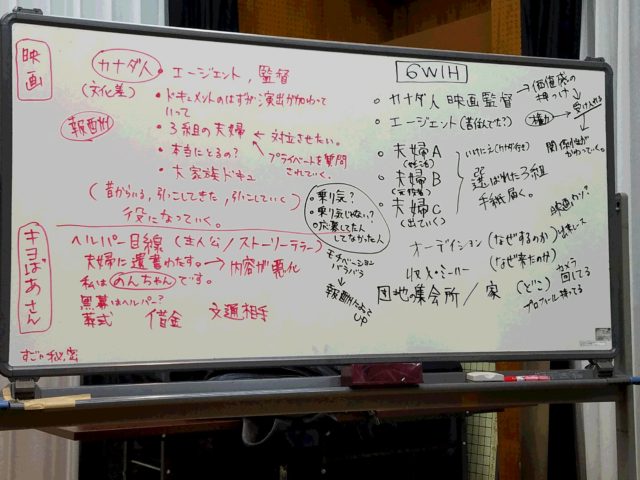 映画
カナダ人
(文化差)
報酬
・エージェント, 監督
・ドキュメントのはずが演出が加わって
いって
・3組の夫婦 ← 対立させたい。
・本当にとるの? プライベートを質問
されていく。
・大家族ドキュ
(昔からいる, 引っこしてきた, 引っこしていく)
役になっていく。
キヨばあさん
ヘルパー目線 (主人公/ストーリーテラー)
夫婦に遺書わたす。→内容が悪化
私はのんちゃんです。
黒幕はヘルパー?
葬式 借金 文通相手
すごい秘密
・乗り気?
・乗り気じゃない?
・応募してた人
してなかった人
モチベーション
バラバラ
報酬
UP
6W1H
・カナダ人 映画監督 → 価値感の
押つけ
・エージェント(昔住んでた?)
権力 → 受け入れる
関係性が
かわっていく。
・夫婦A
・夫婦B
・夫婦C
(出ていく)
選ばれた3組
手紙届く。
オーデイション (なぜするのか)
(なぜ来たのか)
団地の集会所/家 (どこ)
カメラ
回してる
プロフィール持ってる